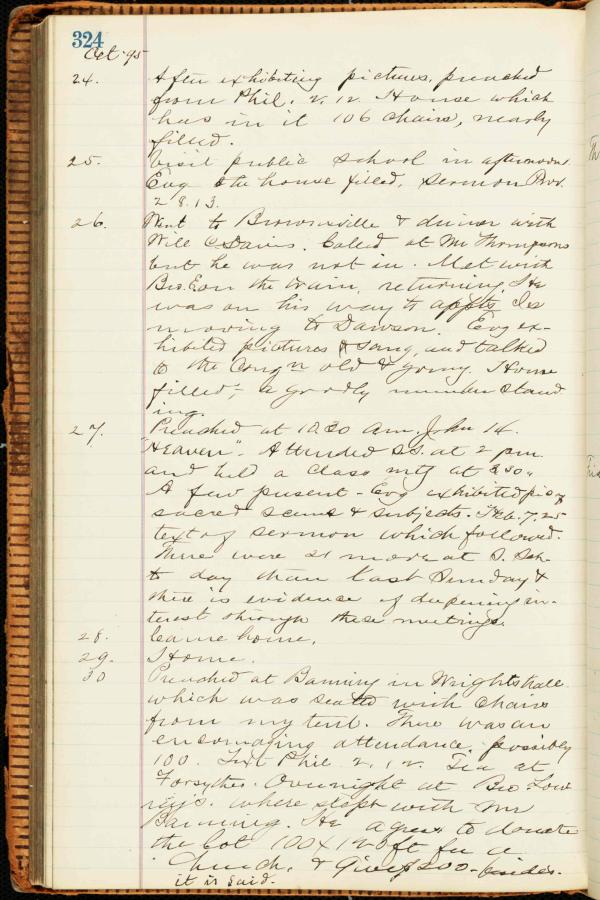 324
Oct. 95
24. After exhibiting pictures, preached
from Phil. 2. 12. House which
has in it 106 chairs, nearly
filled.
25. Visit public school in afternoon.
Evg the house filled, sermon Prov.
28.13.
26. Went to Brownsville & dinner with
Will C. Davis. Called at Mr Thompsons
but he was not in. Met with
Bro. on the train, returning. He
was on his way to appts. Is
moving to Dawson. Evg ex-
hibited pictures & sang, and talked
to the Congn old & young. House
filled, a goodly number stand
ing.
27. Preached at 10.30 am. John 14.
"Heaven". Attended S.S. at 2 pm.
and held a class mtg at 3.30.
A few present - Evg exhibited pic of
sacred scenes & subjects. Heb. 7.25
text of sermon which followed.
There were 21 more at S. Sch.
to day than last Sunday &
there is evidence of deepening in-
terest through these meetings.
28. Came home.
29. Home.
30 Preached at Banning in Wrights hall
which was seated with chairs
from my tent. There was an
encouraging attendance, possibly
100. Text Phil 2. 12. Tea at
Forsythes. Overnight at Bro
where slept with Mr
Banning. He agrees to donate
the lot 100 x 120 ft for a
Church, & Give $200 - besides.
it is said.